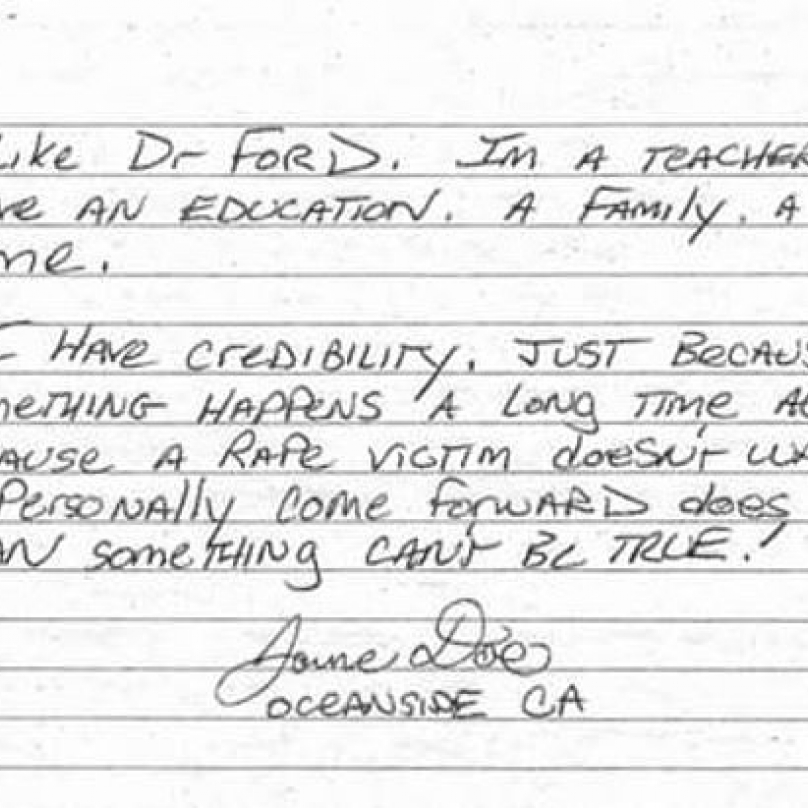 Like Dr FORD. Im A TEACHER
ve AN EDUCATION. A Family. A
me.
I HAVE CREDIBILITY. JUST BECAUS
meTHING HAPPENS A Long TIME AG
AUSE A RAPE VICTIM doesn't WA
Personally Come forward does
AN someTHING CAN'T BE TRUE!
Jane Doe
OCEANSIDE CA